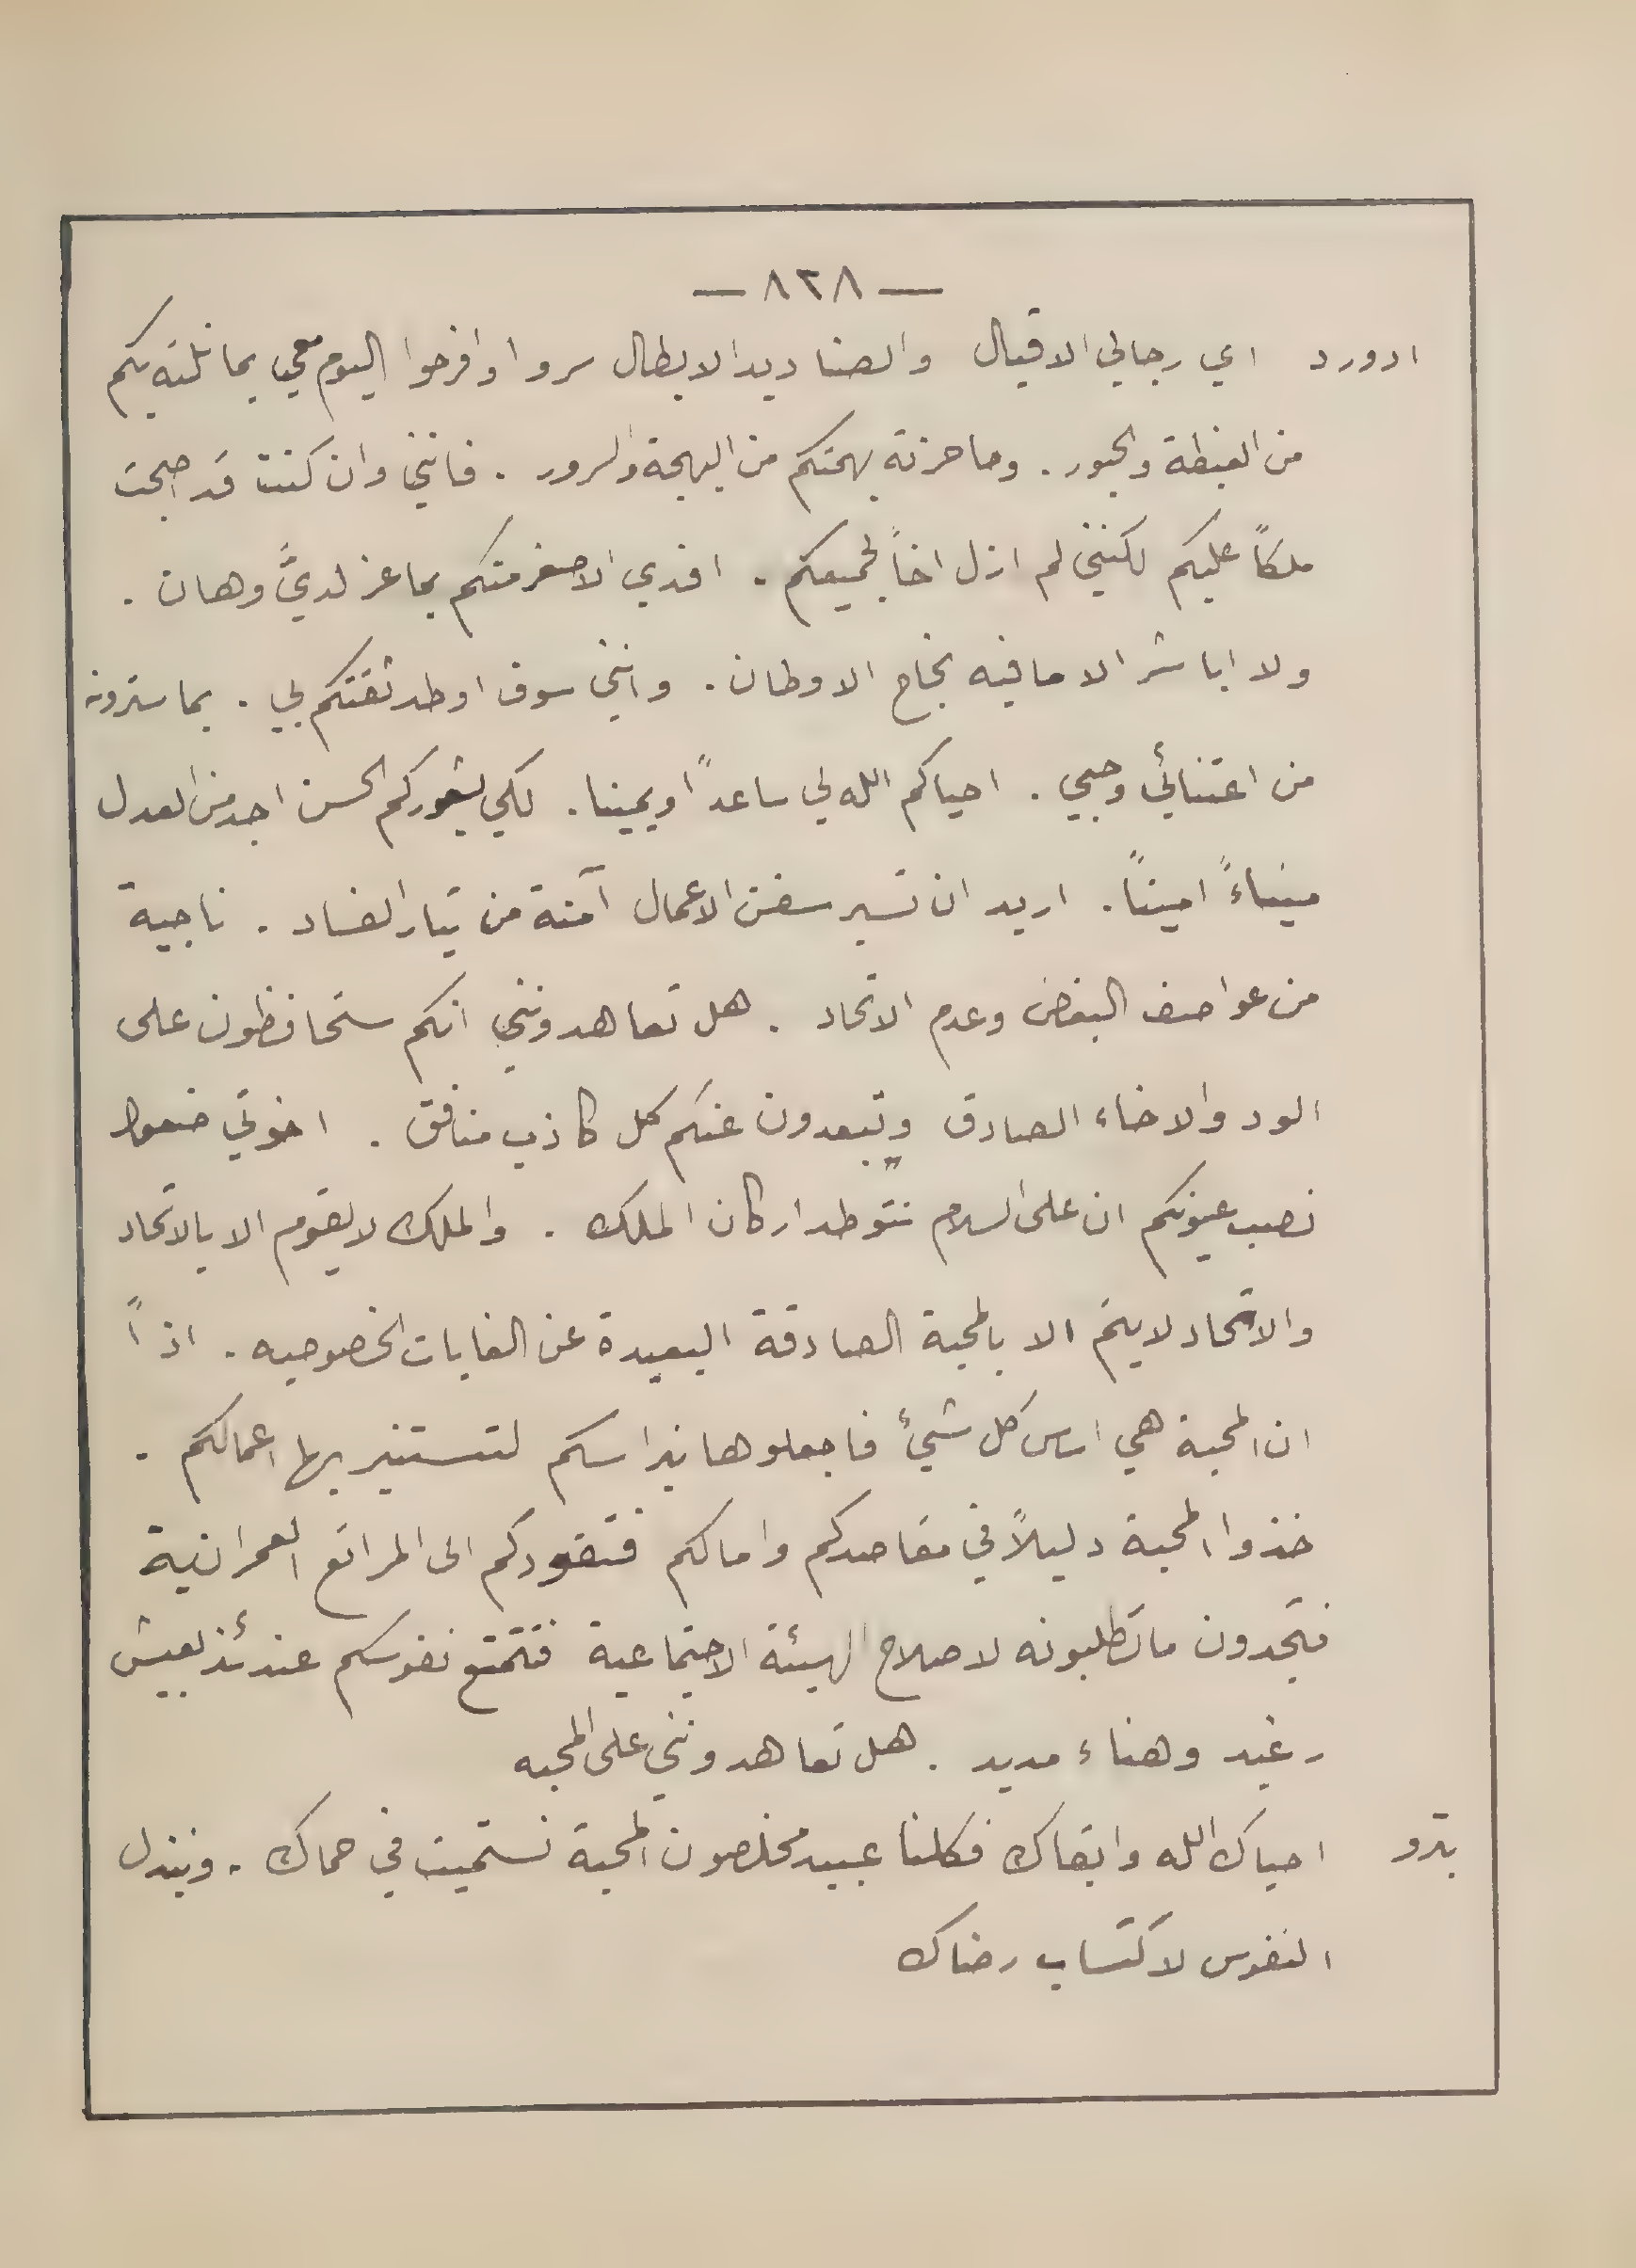 — ٨٢٨ —
ادورد اي رجالي الاقيال والصناديد الابطال سروا وافرحوا اليوم معي بما نلته بكم
من الغبطة والحبور. وما حزته بهمتكم من البهجة والسرور. فانني وان كنت قد اصبحت
ملكاً عليكم لكنني لم ازل اخاً لجميعكم. افدي الاصغر منكم بما عز لديَّ وهان.
ولا اباشر الا ما فيه نجاح الاوطان. وانني سوف اوطد ثقتكم بي. بما سترونه
من اعتنائي وحبي. احياكم الله لي ساعداً ويمينا. لكي بشعوركم الحسن اجد من العدل
ميناءً اميناً. اريد ان تسير سفن الاعمال آمنة من تيار الفساد. ناجية
من عواصف البغض وعدم الاتحاد. هل تعاهدونني انكم ستحافظون على
الود والاخاء الصادق وتبعدون عنكم كل كاذب منافق. اخوتي ضعوا
نصب عيونكم ان على السلام تتوطد اركان الملك. والملك لا يقوم الا بالاتحاد
والاتحاد لا يتم الا بالمحبة الصادقة البعيدة عن الغايات الخصوصيه. اذاً
ان المحبة هي اساس كل شيئ فاجعلوها نبراسكم لتستنير بها اعمالكم.
خذوا المحبة دليلاً في مقاصدكم وامالكم فتقودكم الى المراتع العمرانية
فتجدون ما تطلبونه لاصلاح الهيئة الاجتماعية فتتمتع نفوسكم عندئذ بعيش
رغيد وهناء مديد. هل تعاهدونني على المحبه
بترو احياك الله وابقاك فكلنا عبيد مخلصون المحبة نستميت في حماك. ونبذل
النفوس لاكتساب رضاك